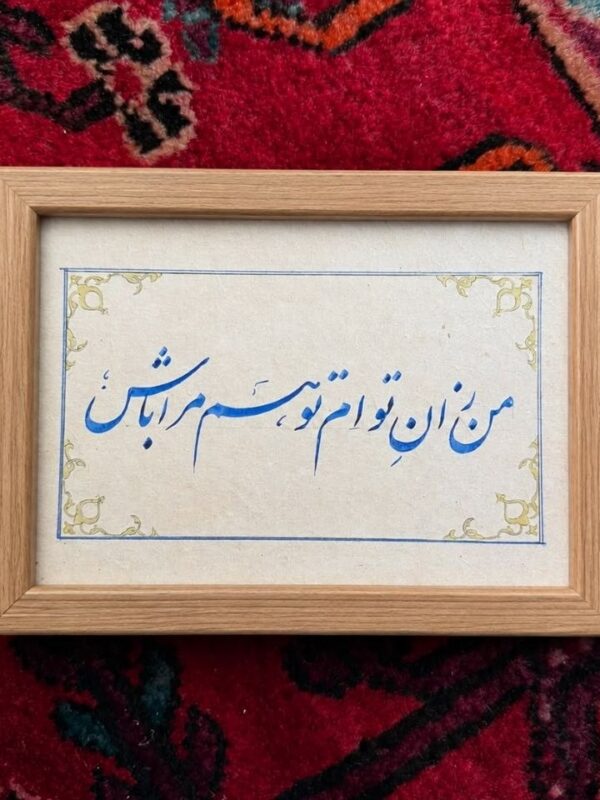 من زانِ تو ام تو هم مرا باش